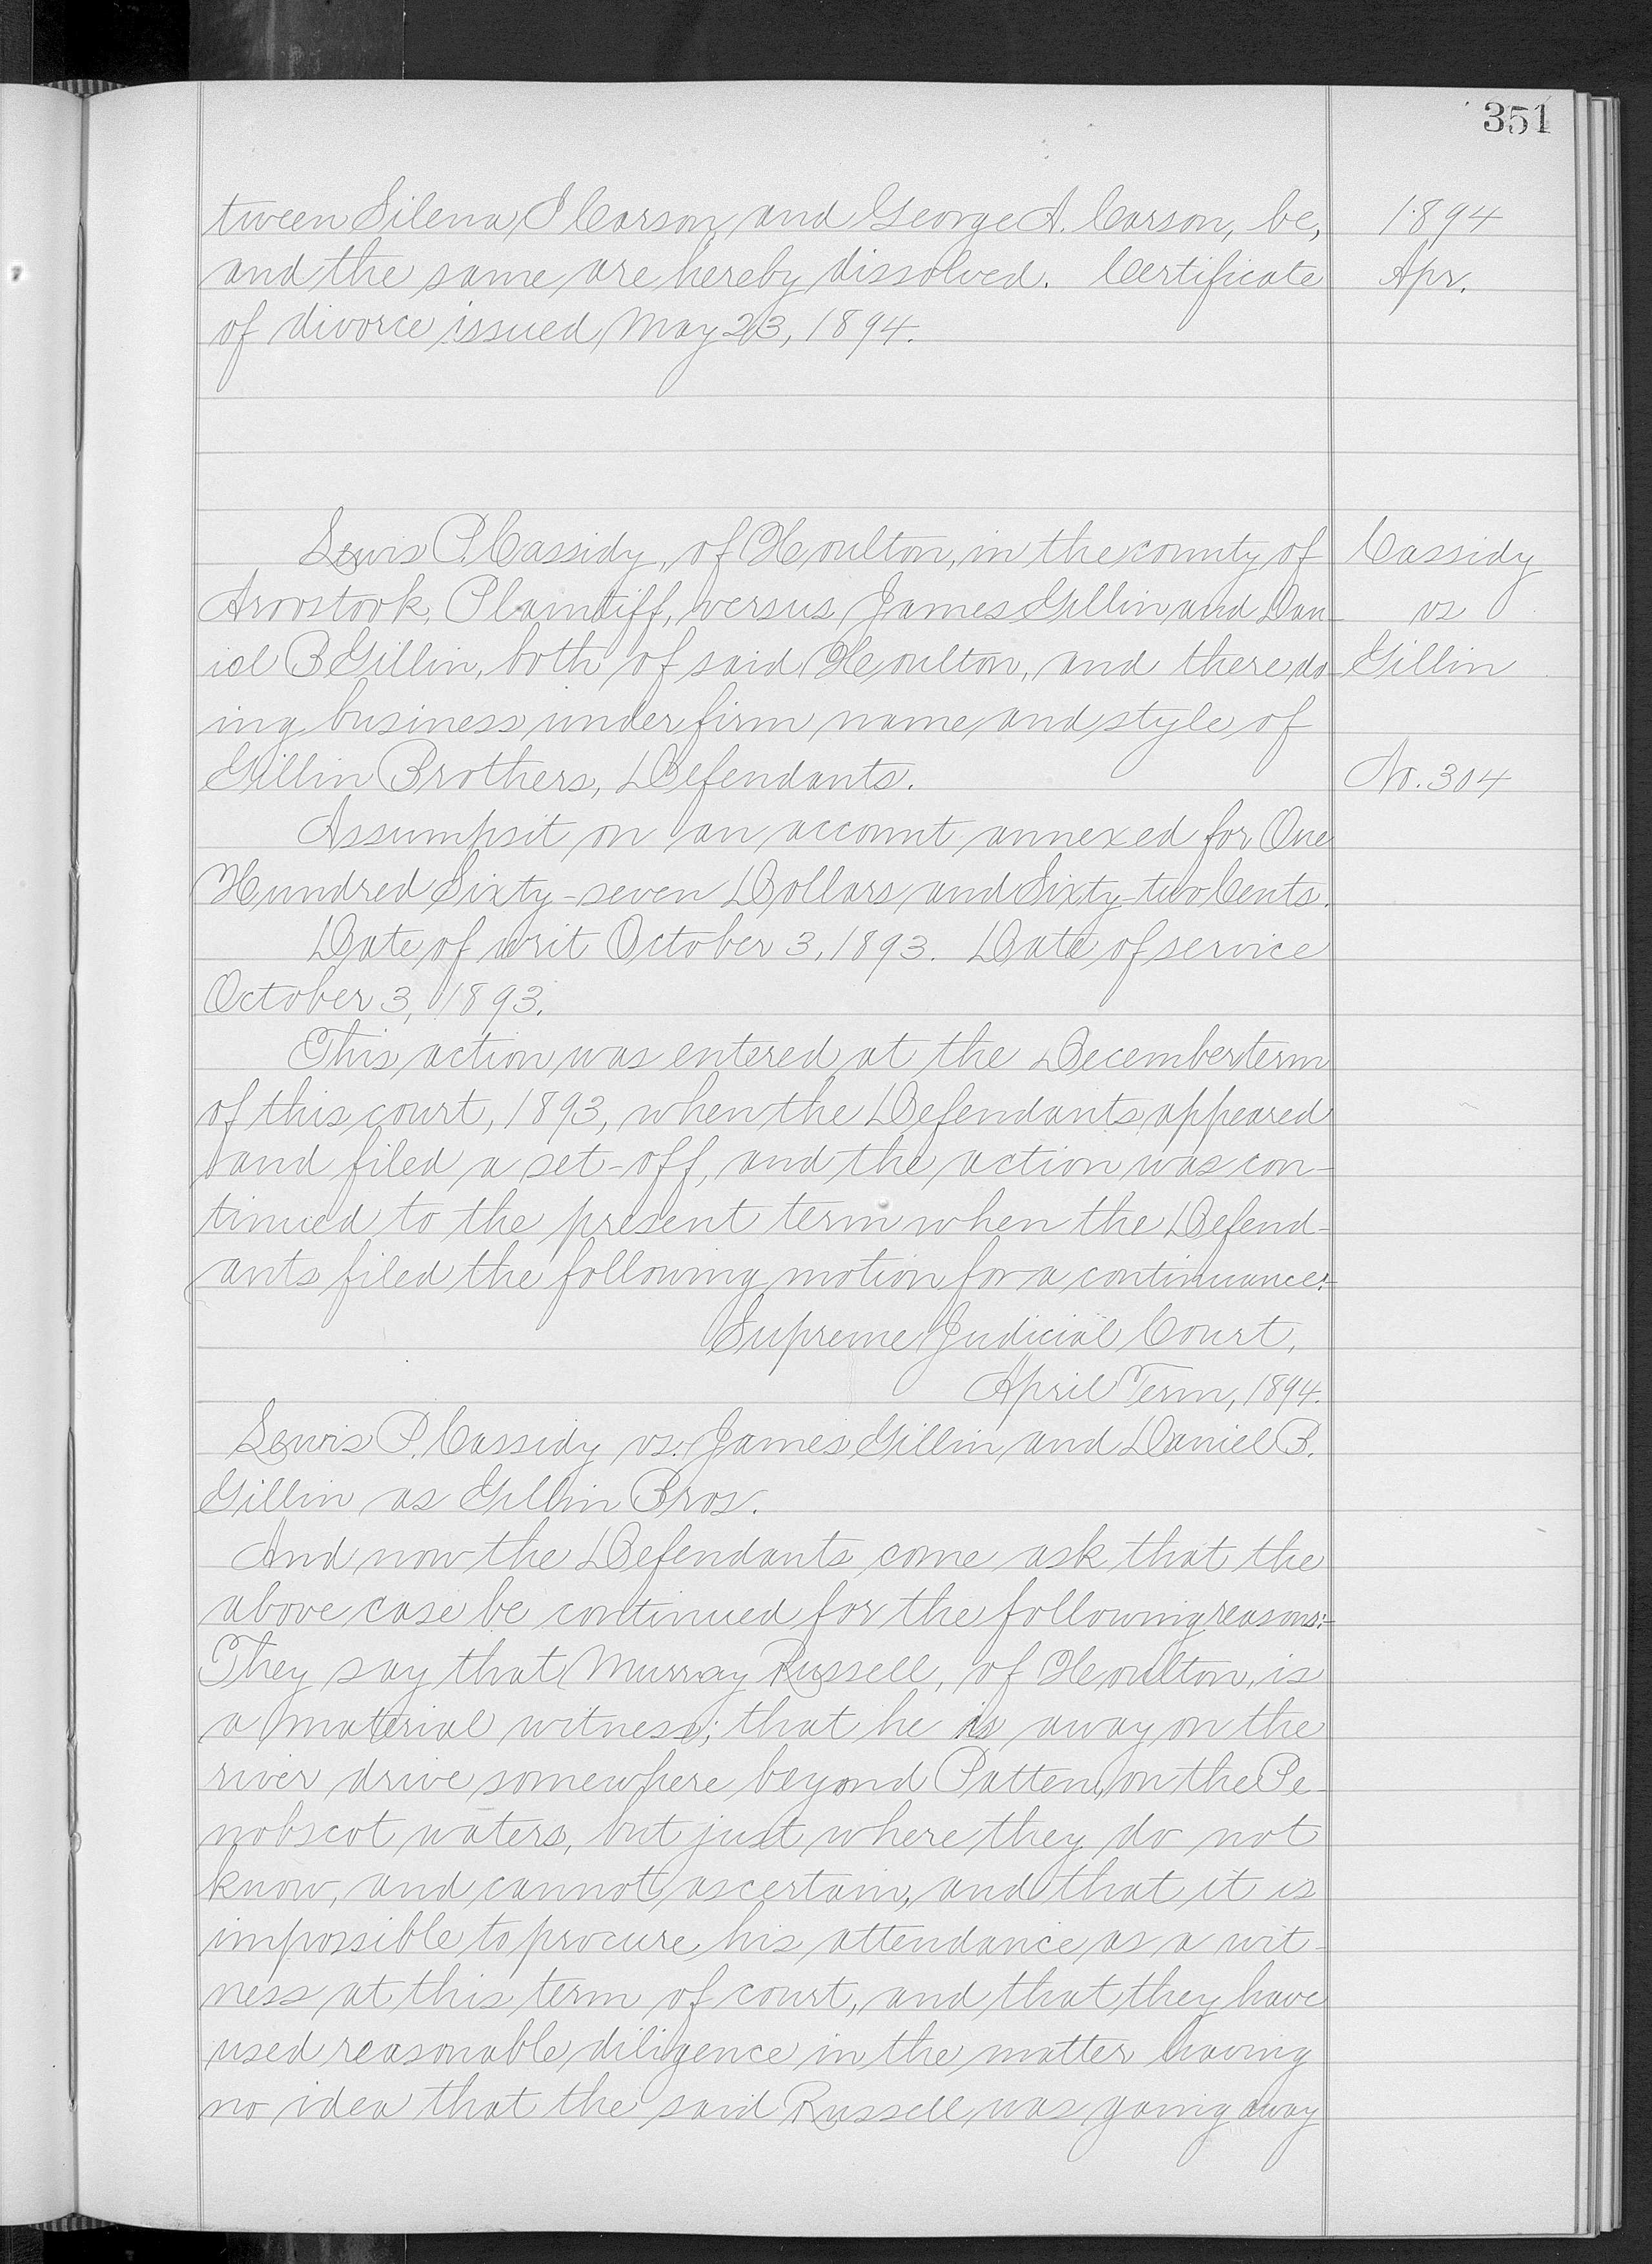 351
tween Silena J Carson and George A. Carson, be,
1894
and the same are hereby dissolved. Certificate
Apr.
of divorce issued May 23, 1894.
Lewis P. Cassidy, of Houlton, in the county of
Cassidy
Aroostook, Plaintiff, versus James Gillin and Dan-
vs
iel B Gillin, both of said Houlton, and there do-
Gillin
ing business under firm name and style of
Gillin Brothers, Defendants.
No. 304
Assumpsit on an account annexed for One
Hundred Sixty-seven Dollars and Sixty-two Cents.
Date of writ October 3, 1893. Date of service
October 3, 1893.
This action was entered at the December term
of this court, 1893, when the Defendants appeared
and filed a set-off, and the action was con-
tinued to the present term when the Defend-
ants filed the following motion for a continuance:-
Supreme Judicial Court,
April Term, 1894.
Lewis P. Cassidy vs. James Gillin and Daniel B.
Gillin as Gillin Bros.
And now the Defendants come ask that the
above case be continued for the following reasons:-
They say that Murray Russell, of Houlton, is
a material witness; that he is away on the
river drive somewhere beyond Patten, on the Pe-
nobscot waters, but just where they do not
know, and cannot ascertain, and that it is
impossible to procure his attendance as a wit-
ness at this term of court, and that they have
used reasonable diligence in the matter having
no idea that the said Russell was going away